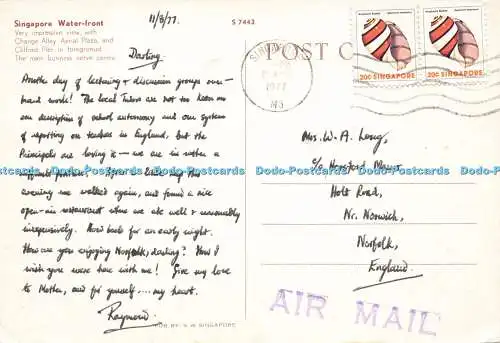 Singapore Water-front
Very impressive view, with
Change Alley Aerial Plaza, and
Clifford Pier in foreground
The main business nerve centre
S 7442
11/8/77.
Darling,
Another day of lecturing & discussion groups over—
hard work! The local Tutors are not too keen on
our description of school autonomy and our system
of reporting on teachers in England, but the
Principals are loving it — we are in rather a
evening we walked again, and found a nice
open-air restaurant where we ate well & reasonably
inexpensively. And back for an early night.
How are you enjoying Norfolk, darling? How I
wish you were here with me! Give my love
to Mother, and for yourself .... my heart.
Raymond
PUB BY: S.W. SINGAPORE
POST C
SINGAPORE
1977
20C SINGAPORE
20C SINGAPORE
Mrs. W. A. Long,
c/o Horsford Manor
Holt Road,
Nr. Norwich,
Norfolk,
England.
AIR MAIL
Dodo-Postcards Dodo-Postcards Dodo-Postcards